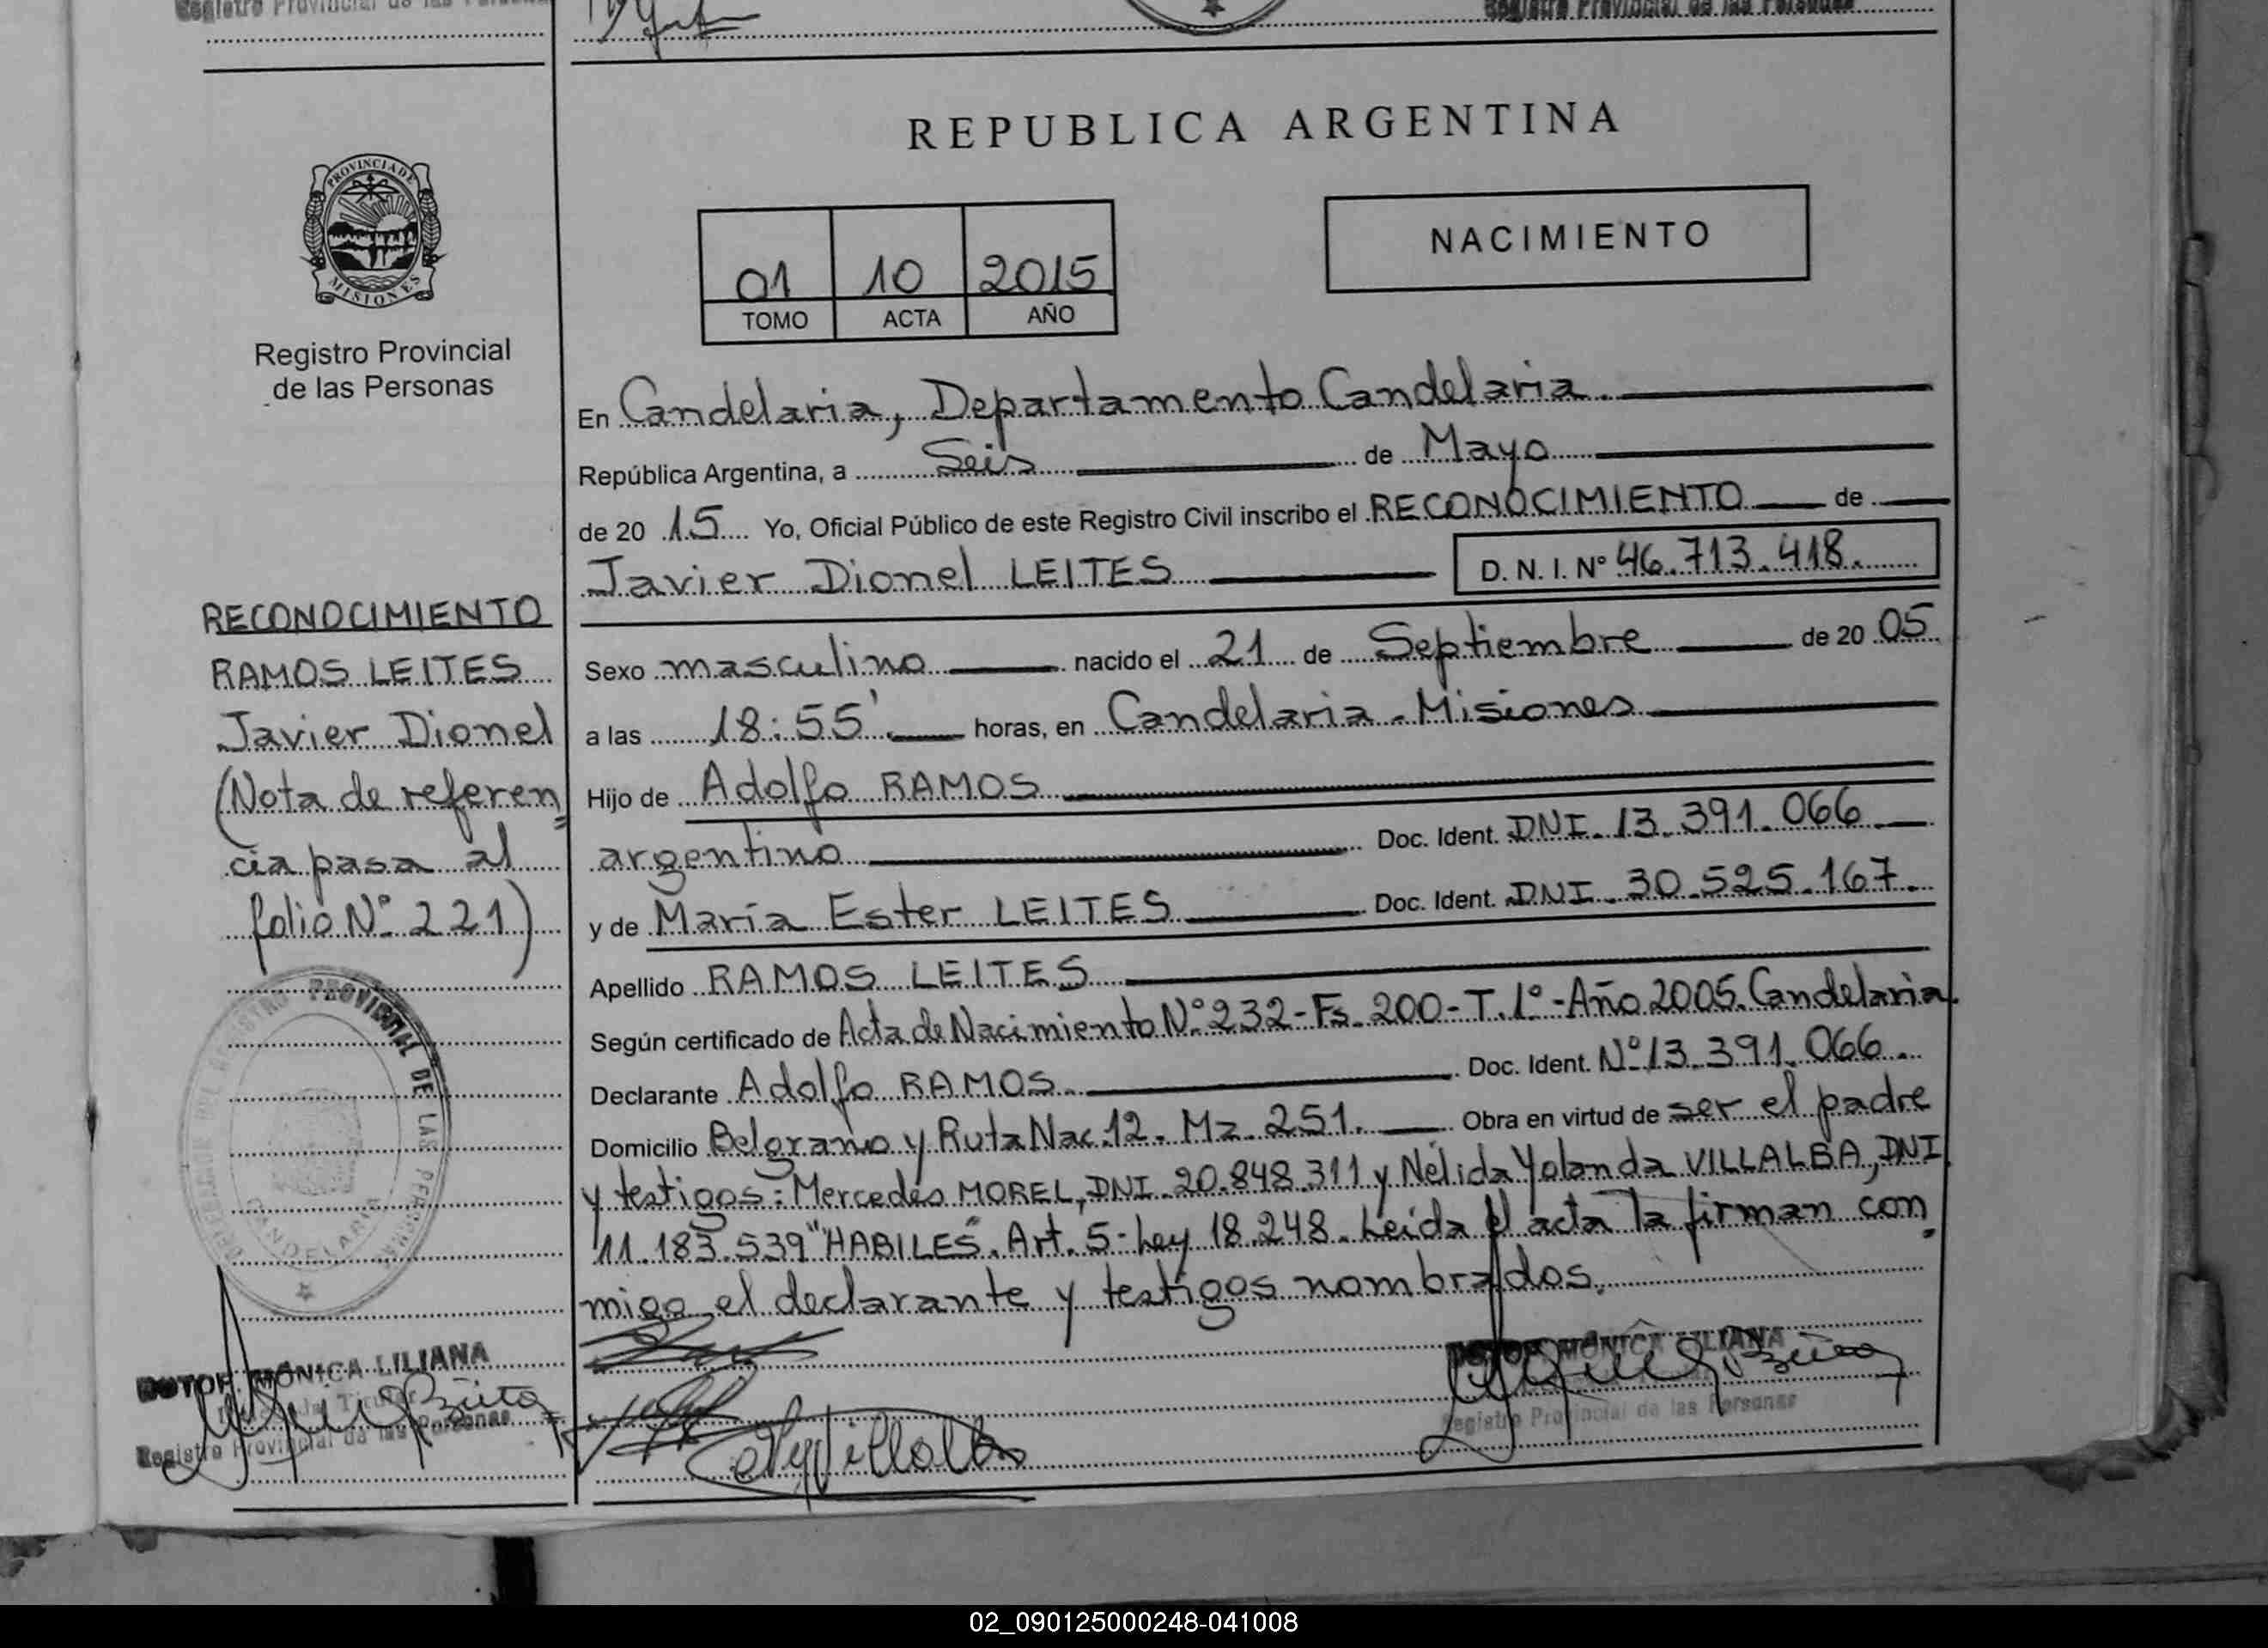 Registro Provincial de las Personas
Registro Provincial de las Personas
REPUBLICA ARGENTINA
PROVINCIA DE
MISIONES
Registro Provincial
de las Personas
01 10 2015
TOMO ACTA AÑO
NACIMIENTO
En Candelaria, Departamento Candelaria.
República Argentina, a Seis de Mayo
de 20 15 Yo, Oficial Público de este Registro Civil inscribo el RECONOCIMIENTO de
Javier Dionel LEITES D. N. I. Nº 46.713.418.
Sexo masculino nacido el 21 de Septiembre de 20 05
a las 18:55'. horas, en Candelaria - Misiones
Hijo de Adolfo RAMOS
argentino Doc. Ident. DNI. 13.391.066
y de María Ester LEITES Doc. Ident. DNI. 30.525.167.
Apellido RAMOS LEITES
Según certificado de Acta de Nacimiento Nº 232-Fs. 200-T.1º-Año 2005. Candelaria.
Declarante Adolfo RAMOS Doc. Ident. Nº 13.391.066.
Domicilio Belgrano y Ruta Nac. 12. Mz. 251. Obra en virtud de ser el padre
y testigos: Mercedes MOREL, DNI. 20.848.311 y Nélida Yolanda VILLALBA, DNI
11.183.539 "HABILES". Art. 5- Ley 18.248. Leída el acta la firman con
migo, el declarante y testigos nombrados.
RECONOCIMIENTO
RAMOS LEITES
Javier Dionel
(Nota de referen=
cia pasa al
folio Nº 221)
PROVINCIAL DE LAS PERSONAS
CANDELARIA
MÓNICA LILIANA
Registro Provincial de las Personas
MÓNICA LILIANA
Registro Provincial de las Personas
02_090125000248-041008